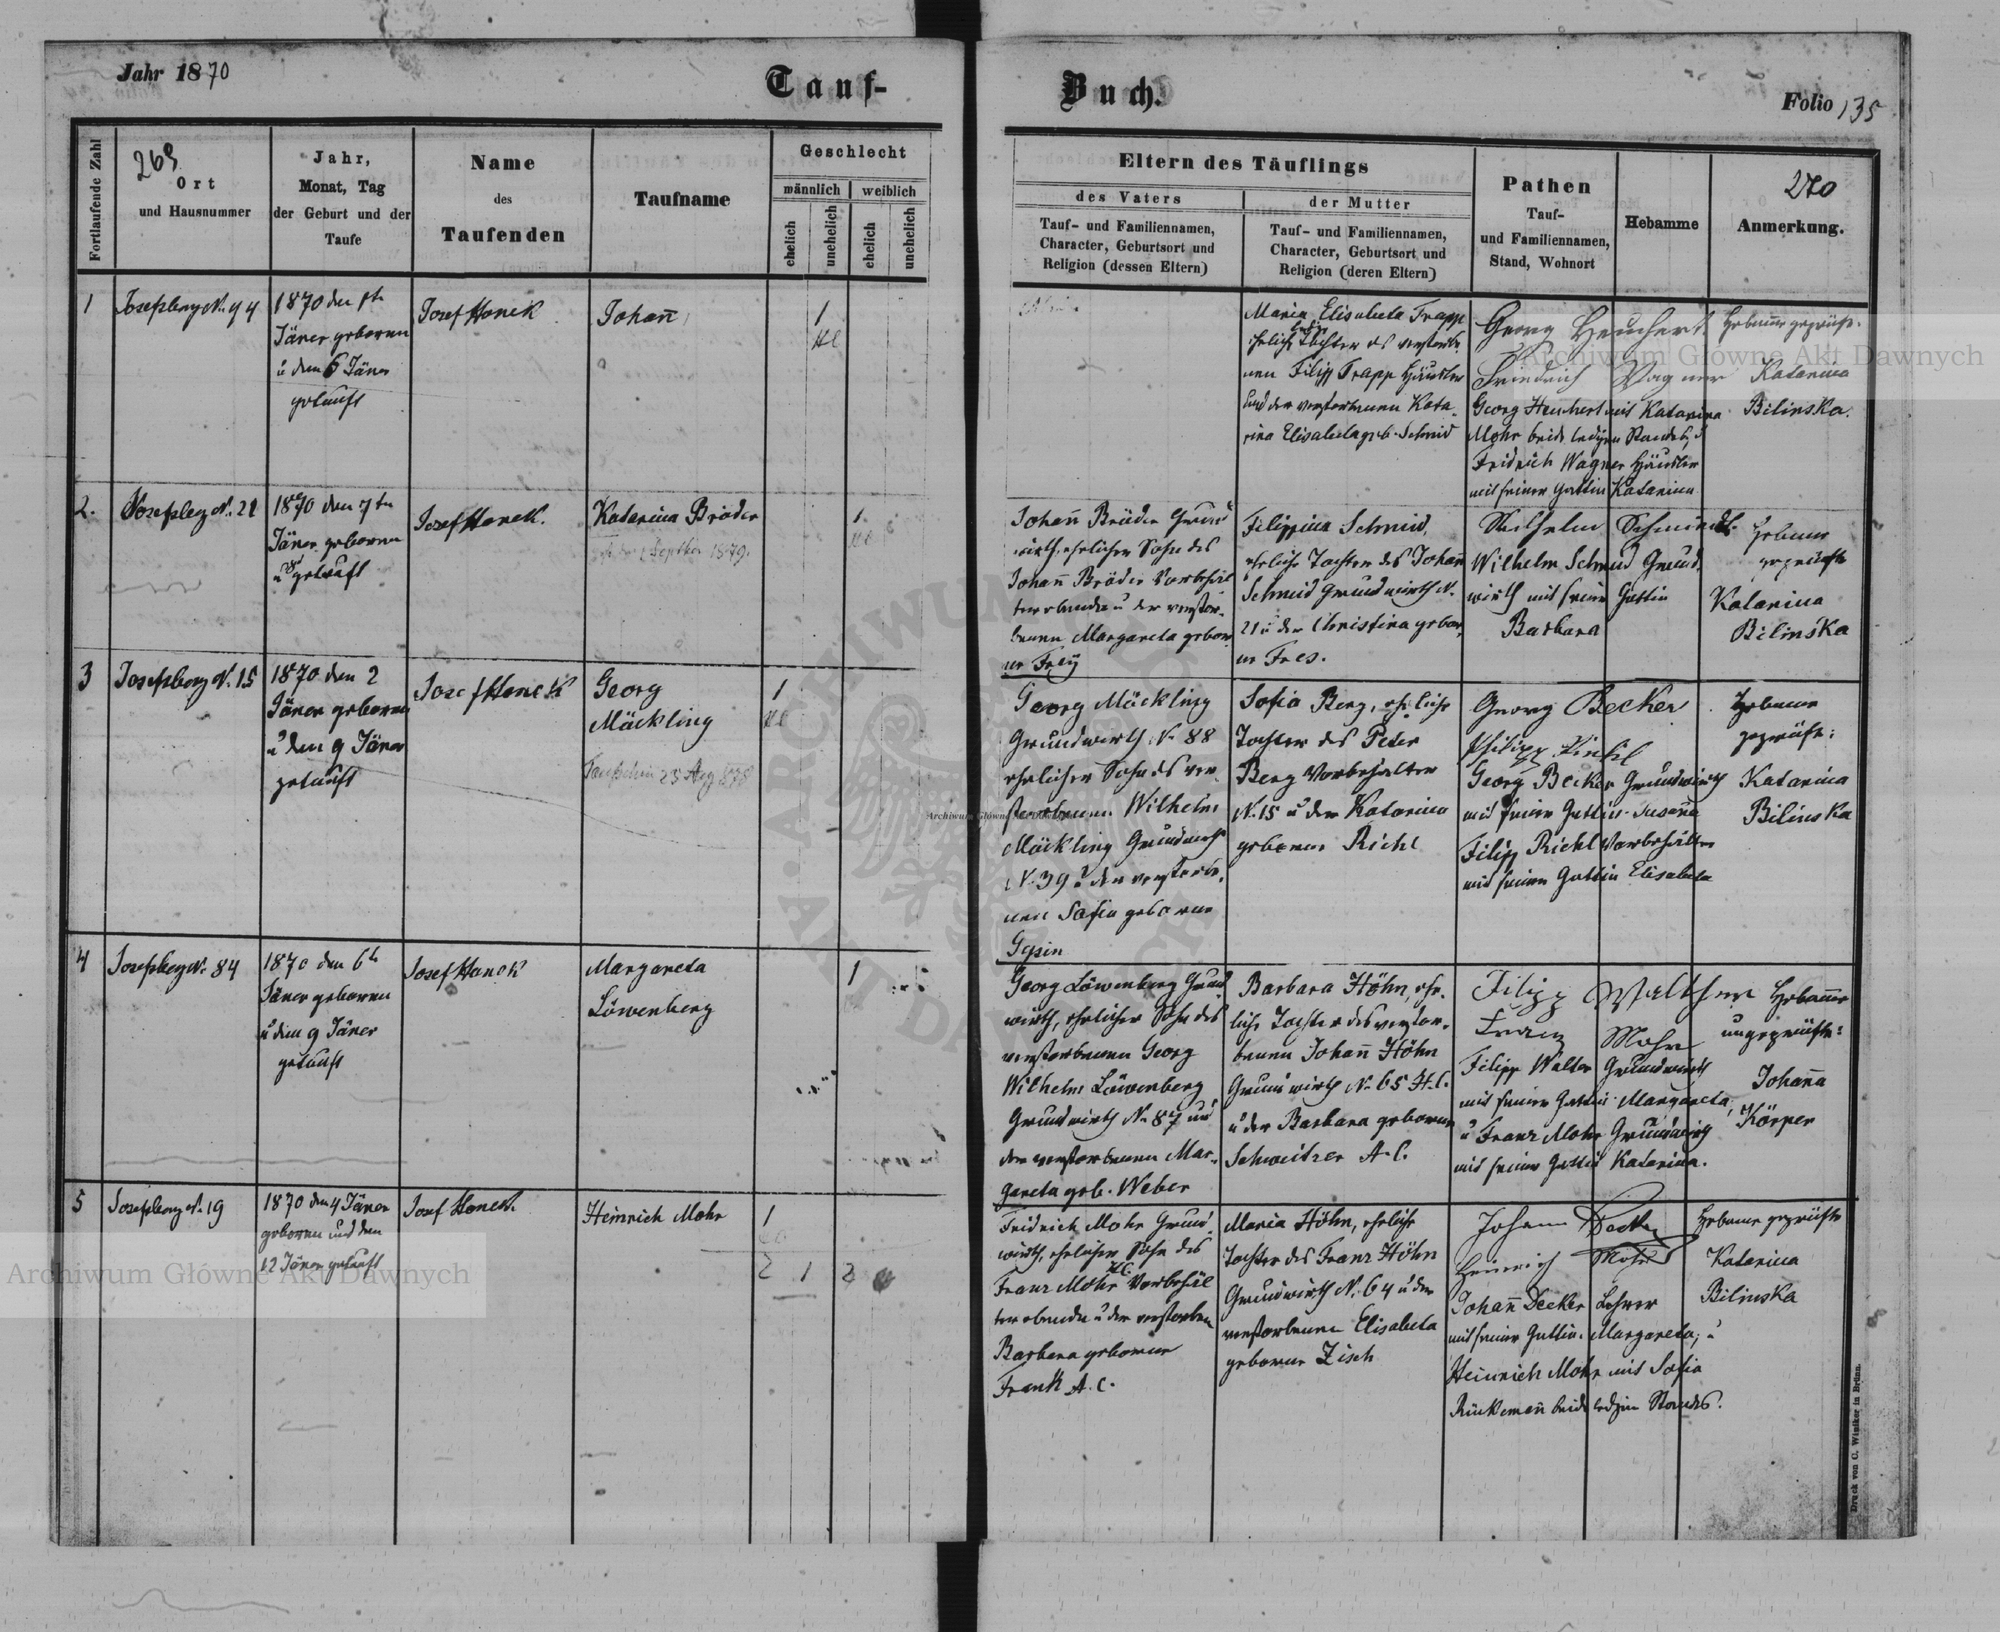 Jahr 1870
Tauf-
Buch.
Folio 135
Fortlaufende Zahl
269
Ort
und Hausnummer
Jahr,
Monat, Tag
der Geburt und der
Taufe
Name
des
Taufenden
Taufname
Geschlecht
männlich
weiblich
ehelich
unehelich
ehelich
unehelich
Eltern des Täuflings
des Vaters
Tauf- und Familiennamen,
Character, Geburtsort und
Religion (dessen Eltern)
der Mutter
Tauf- und Familiennamen,
Character, Geburtsort und
Religion (deren Eltern)
Pathen
Tauf-
und Familiennamen,
Stand, Wohnort
Hebamme
270
Anmerkung.
1
Josefsberg N. 94
1870 den
Jäner geboren
u den 6 Jäner
getauft
Josef Hanek
Johañ
1
Maria Elisabeta Trapp
eheliche Tochter des verstorbe-
nen Filipp Trapp Häusler
und der verstorbenen Kata-
rina Elisabeta geb. Schmid
Georg Heuchert
Friedrich Wagner
Georg Heuchert mit Katarina
Mohr beide ledigen Standes, u
Fridrich Wagner Häusler
mit seiner Gattin Katarina
Hebame geprüfte
Katarina
Bilinska.
2.
Josefsberg N. 21
1870 den 7tn
Jäner geboren
u getauft
Josef Hanek.
Katarina Bräder
2 Septbr 1879.
1
Johañ Bräder Grund
wirth, ehelicher Sohn des
Johañ Bräder Vorbehäl
ter u der verstor-
benen Margareta gebor
ne Frey
Filippina Schmid,
eheliche Tochter des Johañ
Schmid Grundwirth N.
21 u der Christina gebor,
ne Fres.
Wilhelm Schmid
Wilhelm Schmid Grund,
wirth mit seiner Gattin
Barbara
Hebame
geprüfte
Katarina
Bilinska
3
Josefsberg N. 15
1870 den 2
Jäner geboren
u den 9 Jäner
getauft
Josef Hanek
Georg
Mäckling
Taufschein 23 Aug 1878
1
Georg Mäckling
Grundwirth N. 88
ehelicher Sohn des ver-
storbenen Wilhelm
Mäckling Grundwirth
N. 39 u der verstorbe,
nen Sofia geborne
Gysin
Sofia Berg, eheliche
Tochter des Peter
Berg Vorbehälter
N. 15 u der Katarina
geborene Richl
Georg Becker
Philipp
Georg Becker Grundwirth
mit seiner Gattin Susaña
Filipp Richl Vorbehälter
mit seiner Gattin Elisabeta
Hebame
geprüfte:
Katarina
Bilinska
4
Josefsberg N. 84
1870 den 6t
Jäner geboren
u den 9 Jäner
getauft
Josef Hanek
Margareta
Löwenberg
1
Georg Löwenberg Grund
wirth, ehelicher Sohn des
verstorbenen Georg
Wilhelm Löwenberg
Grundwirth N. 87 und
der verstorbenen Mar-
gareta geb. Weber
Barbara Höhn, ehe-
liche Tochter des verstor-
benen Johañ Höhn
Grundwirth N. 65 H.C.
u der Barbara geborene
Schweitzer A.C.
Filipp Walther
Franz Mohr
Filipp Walter Grundwirth
mit seiner Gattin Margareta,
u Franz Mohr Grundwirth
mit seiner Gattin Katarina.
Hebame
ungeprüfte:
Johaña
Körper
5
Josefsberg N. 19
1870 den 4 Jäner
geboren und den
12 Jäner getauft
Josef Hanek.
Heinrich Mohr
1
2 1 2
Fridrich Mohr Grund,
wirth, ehelicher Sohn des
Franz Mohr H.C. Vorbehäl
ter u der verstorben
Barbara geborene
Frank A.C.
Maria Höhn, eheliche
Tochter des Franz Höhn
Grundwirth N. 64 u der
verstorbenen Elisabeta
geborne Zisch
Johann Decker
Heinrich Mohr
Johañ Decker Lehrer
mit seiner Gattin Margareta, u
Heinrich Mohr mit Sofia
Rükemañ beide ledigen Standes.
Hebame geprüfte
Katarina
Bilinska
Druck von C. Winiker in Brünn.
Archiwum Główne Akt Dawnych
Archiwum Główne Akt Dawnych
Archiwum Główne Akt Dawnych
ARCHIWUM GŁÓWNE AKT DAWNYCH